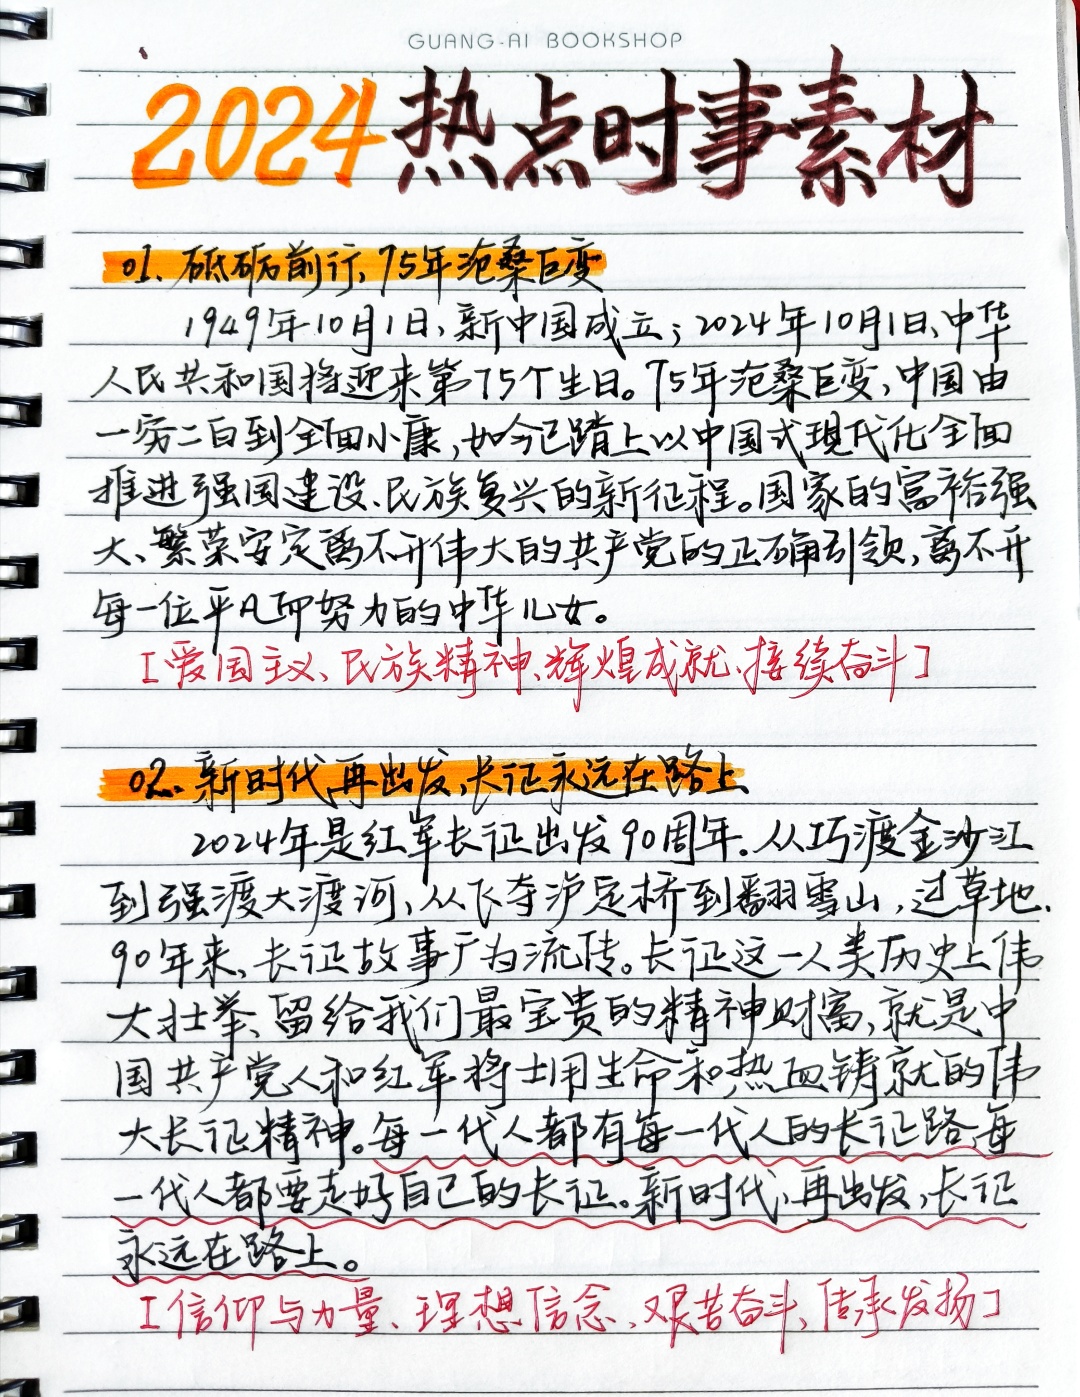 GUANG-AI BOOKSHOP
2024热点时事素材
01. 砥砺前行、75年沧桑巨变
1949年10月1日,新中国成立;2024年10月1日、中华
人民共和国将迎来第75个生日。75年沧桑巨变,中国由
一穷二白到全面小康,如今已踏上以中国式现代化全面
推进强国建设、民族复兴的新征程。国家的富裕强
大、繁荣安定离不开伟大的共产党的正确引领,离不开
每一位平凡而努力的中华儿女。
[爱国主义、民族精神、辉煌成就、接续奋斗]
02. 新时代再出发,长征永远在路上
2024年是红军长征出发90周年.从巧渡金沙江
到强渡大渡河,从飞夺泸定桥到翻雪山,过草地.
90年来,长征故事广为流传。长征这一人类历史上伟
大壮举、留给我们最宝贵的精神财富,就是中
国共产党人和红军将士用生命和热血铸就的伟
大长征精神。每一代人都有每一代人的长征路,每
一代人都要走好自己的长征。新时代,再出发,长征
永远在路上。
[信仰与力量、理想信念、艰苦奋斗、传承发扬]